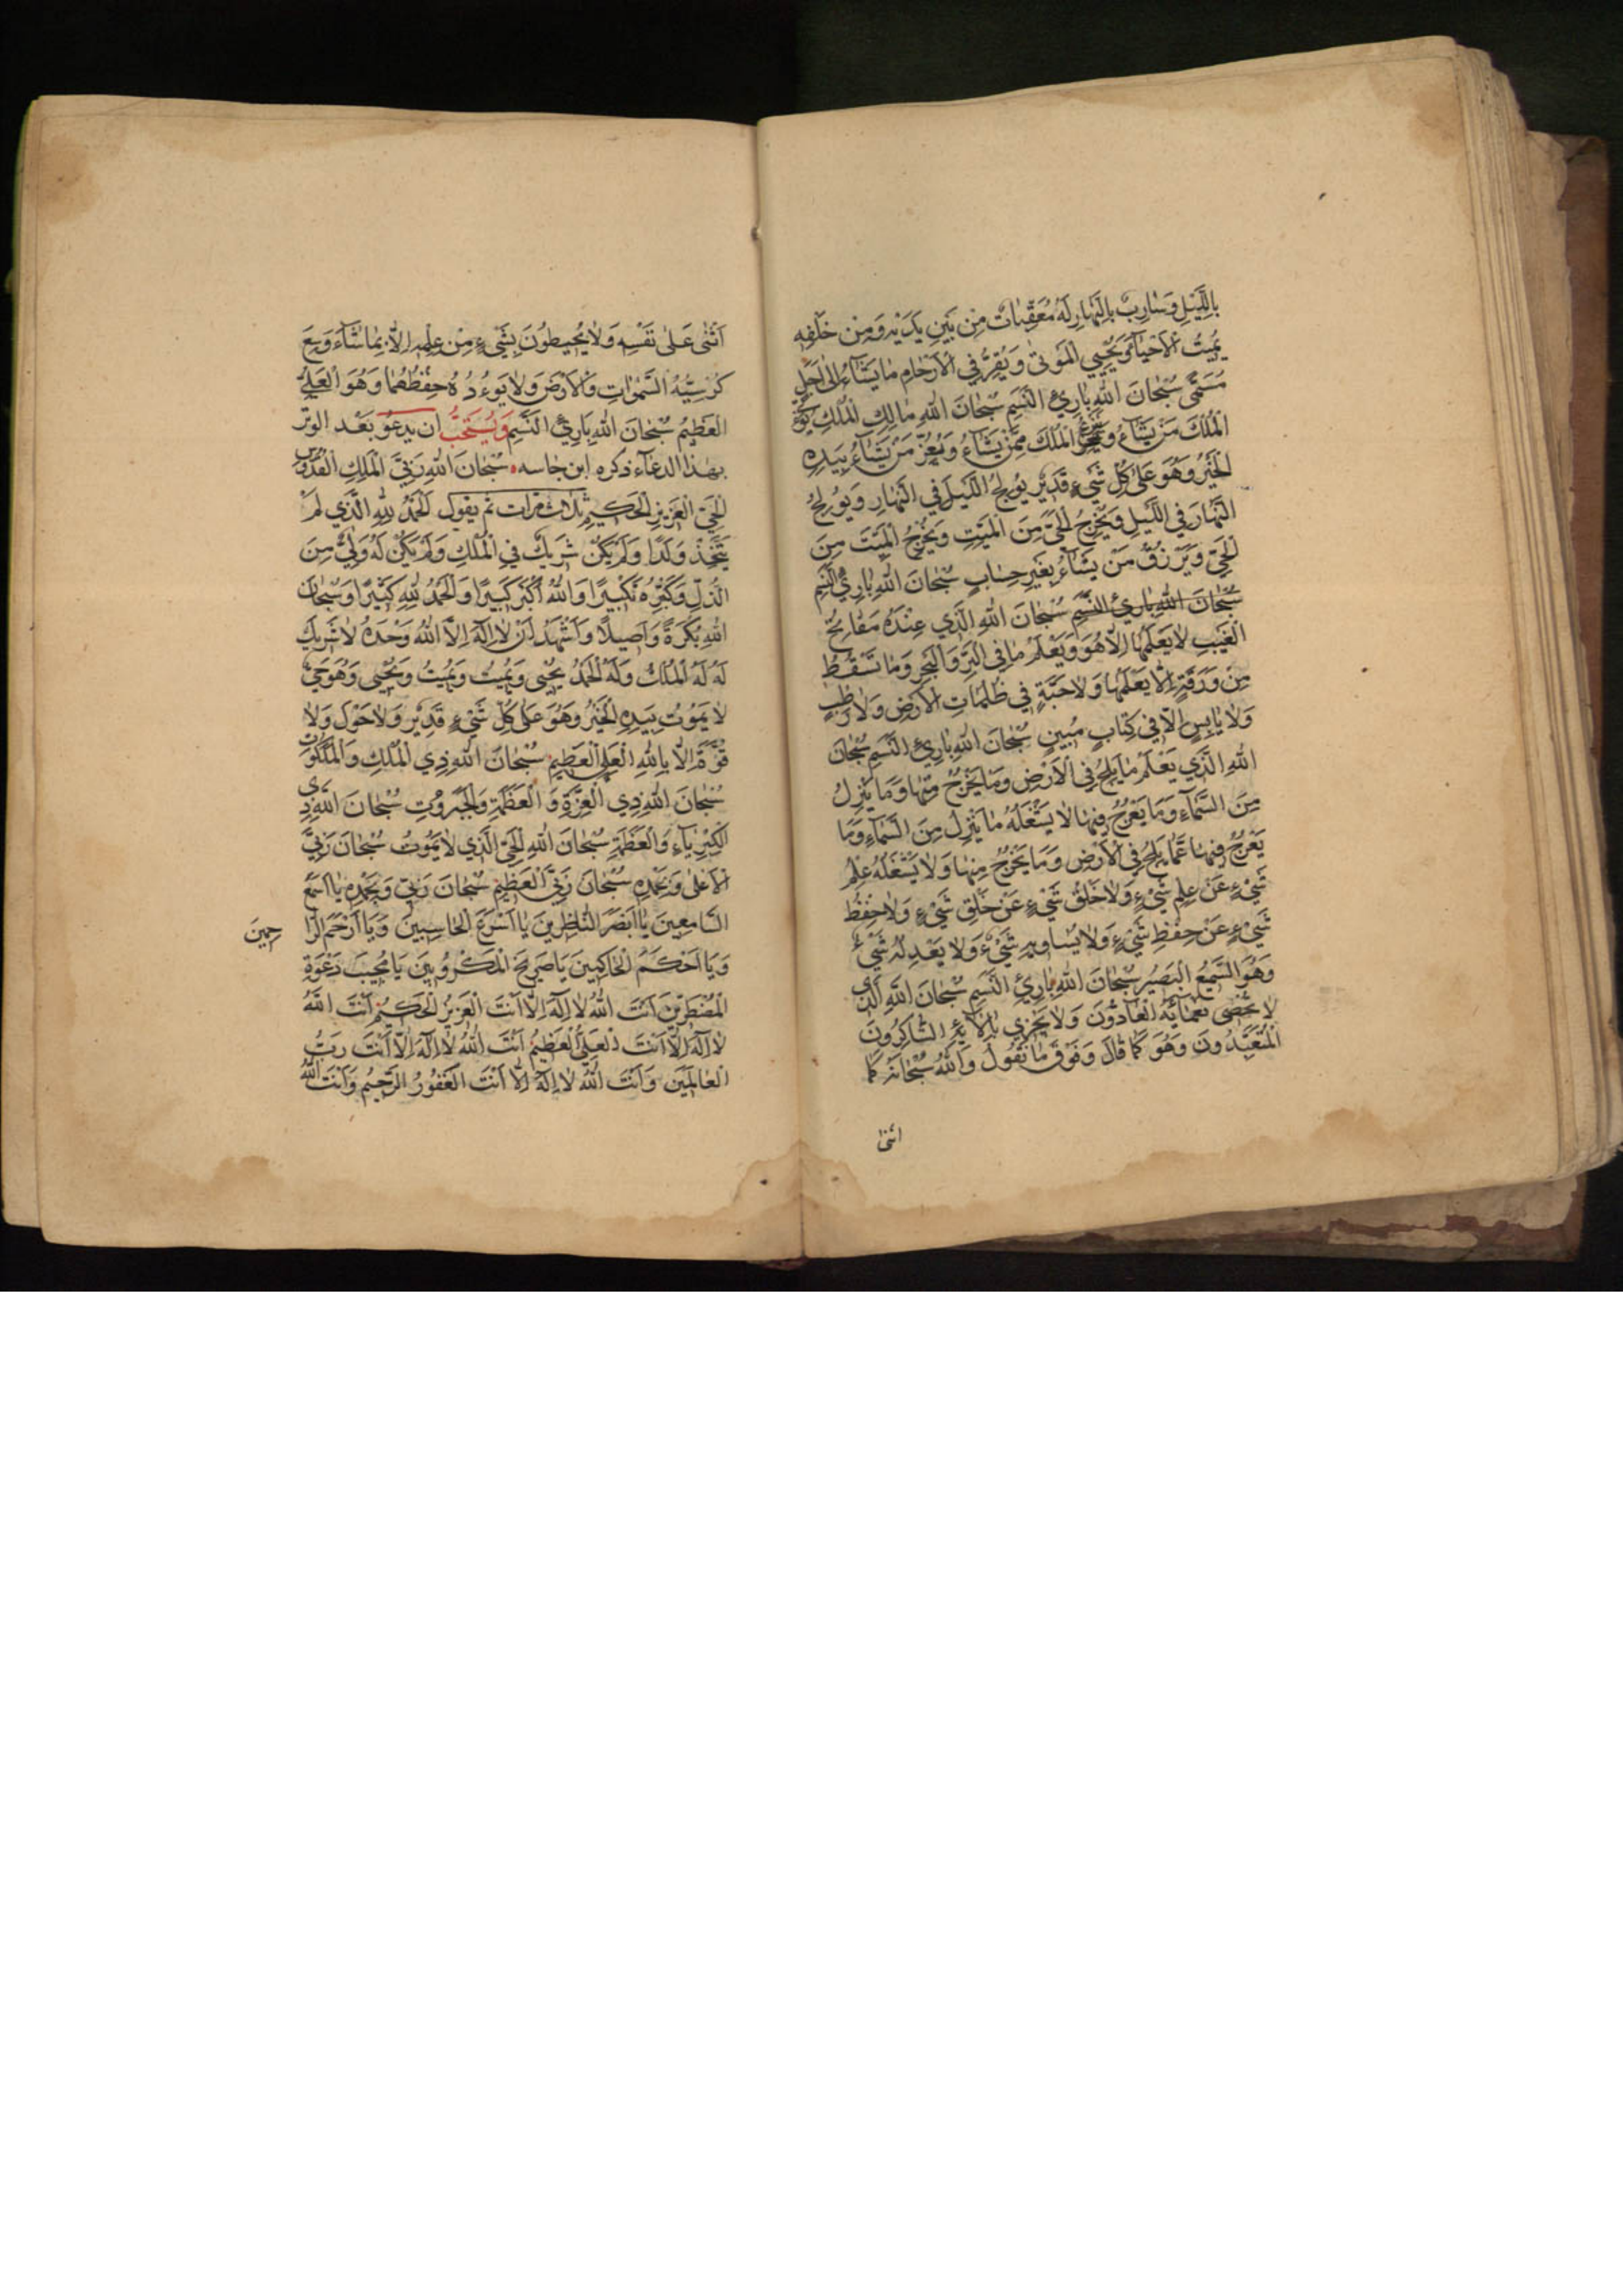 بِاللَّيْلِ وَسَارِبٌ بِالنَّهَارِ لَهُ مُعَقِّبَاتٌ مِنْ بَيْنِ يَدَيْهِ وَمِنْ خَلْفِهِ
يُمِيتُ الْأَحْيَاءَ وَيُحْيِي الْمَوْتَىٰ وَيُقِرُّ فِي الْأَرْحَامِ مَا يَشَاءُ إِلَىٰ أَجَلٍ
مُسَمًّى سُبْحَانَ اللهِ بَارِئِ النَّسَمِ سُبْحَانَ اللهِ مَالِكِ الْمُلْكِ يُؤْتِي
الْمُلْكَ مَنْ يَشَاءُ وَيَنْزِعُ الْمُلْكَ مِمَّنْ يَشَاءُ وَيُعِزُّ مَنْ يَشَاءُ بِيَدِهِ
الْخَيْرُ وَهُوَ عَلَىٰ كُلِّ شَيْءٍ قَدِيرٌ يُولِجُ اللَّيْلَ فِي النَّهَارِ وَيُولِجُ
النَّهَارَ فِي اللَّيْلِ وَيُخْرِجُ الْحَيَّ مِنَ الْمَيِّتِ وَيُخْرِجُ الْمَيِّتَ مِنَ
الْحَيِّ وَيَرْزُقُ مَنْ يَشَاءُ بِغَيْرِ حِسَابٍ سُبْحَانَ اللهِ بَارِئِ النَّسَمِ
سُبْحَانَ اللهِ بَارِئِ النَّسَمِ سُبْحَانَ اللهِ الَّذِي عِنْدَهُ مَفَاتِحُ
الْغَيْبِ لَا يَعْلَمُهَا إِلَّا هُوَ وَيَعْلَمُ مَا فِي الْبَرِّ وَالْبَحْرِ وَمَا تَسْقُطُ
مِنْ وَرَقَةٍ إِلَّا يَعْلَمُهَا وَلَا حَبَّةٍ فِي ظُلُمَاتِ الْأَرْضِ وَلَا رَطْبٍ
وَلَا يَابِسٍ إِلَّا فِي كِتَابٍ مُبِينٍ سُبْحَانَ اللهِ بَارِئِ النَّسَمِ سُبْحَانَ
اللهِ الَّذِي يَعْلَمُ مَا يَلِجُ فِي الْأَرْضِ وَمَا يَخْرُجُ مِنْهَا وَمَا يَنْزِلُ
مِنَ السَّمَاءِ وَمَا يَعْرُجُ فِيهَا لَا يَشْغَلُهُ مَا يَنْزِلُ مِنَ السَّمَاءِ وَمَا
يَعْرُجُ فِيهَا عَمَّا يَلِجُ فِي الْأَرْضِ وَمَا يَخْرُجُ مِنْهَا وَلَا يَشْغَلُهُ عِلْمُ
شَيْءٍ عَنْ عِلْمِ شَيْءٍ وَلَا خَلْقُ شَيْءٍ عَنْ خَلْقِ شَيْءٍ وَلَا حِفْظُ
شَيْءٍ عَنْ حِفْظِ شَيْءٍ وَلَا يُسَاوِيهِ شَيْءٌ وَلَا يَعْدِلُهُ شَيْءٌ
وَهُوَ السَّمِيعُ الْبَصِيرُ سُبْحَانَ اللهِ بَارِئِ النَّسَمِ سُبْحَانَ اللهِ الَّذِي
لَا يُحْصِي نَعْمَائَهُ الْعَادُّونَ وَلَا يَجْزِي بِآلَائِهِ الشَّاكِرُونَ
الْمُتَعَبِّدُونَ وَهُوَ كَمَا قَالَ وَفَوْقَ مَا نَقُولُ وَاللهُ سُبْحَانَهُ كَمَا
اثنى
أَثْنَىٰ عَلَىٰ نَفْسِهِ وَلَا يُحِيطُونَ بِشَيْءٍ مِنْ عِلْمِهِ إِلَّا بِمَا شَاءَ وَسِعَ
كُرْسِيُّهُ السَّمَوَاتِ وَالْأَرْضَ وَلَا يَؤُدُهُ حِفْظُهُمَا وَهُوَ الْعَلِيُّ
الْعَظِيمُ سُبْحَانَ اللهِ بَارِئِ النَّسَمِ وَيُسْتَحَبُّ ان يدعو بَعْد الوتر
بهذا الدعاء ذكره ابن خاسه سُبْحَانَ اللهِ رَبِّيَ الْمَلِكِ الْقُدُّوسِ
الْحَيِّ الْعَزِيزِ الْحَكِيمِ ثلاث مرات ثم يقول الْحَمْدُ لِلهِ الَّذِي لَمْ
يَتَّخِذْ وَلَدًا وَلَمْ يَكُنْ شَرِيكٌ فِي الْمُلْكِ وَلَمْ يَكُنْ لَهُ وَلِيٌّ مِنَ
الذُّلِّ وَكَبِّرْهُ تَكْبِيرًا وَاللهُ أَكْبَرُ كَبِيرًا وَالْحَمْدُ لِلهِ كَثِيرًا وَسُبْحَانَ
اللهِ بُكْرَةً وَأَصِيلًا وَأَشْهَدُ أَنْ لَا إِلَهَ إِلَّا اللهُ وَحْدَهُ لَا شَرِيكَ
لَهُ لَهُ الْمُلْكُ وَلَهُ الْحَمْدُ يُحْيِي وَيُمِيتُ وَيُمِيتُ وَيُحْيِي وَهُوَ حَيٌّ
لَا يَمُوتُ بِيَدِهِ الْخَيْرُ وَهُوَ عَلَىٰ كُلِّ شَيْءٍ قَدِيرٌ وَلَا حَوْلَ وَلَا
قُوَّةَ إِلَّا بِاللهِ الْعَلِيِّ الْعَظِيمِ سُبْحَانَ اللهِ ذِي الْمُلْكِ وَالْمَلَكُوتِ
سُبْحَانَ اللهِ ذِي الْعِزَّةِ وَالْعَظَمَةِ وَالْجَبَرُوتِ سُبْحَانَ اللهِ ذِي
الْكِبْرِيَاءِ وَالْعَظَمَةِ سُبْحَانَ اللهِ الْحَيِّ الَّذِي لَا يَمُوتُ سُبْحَانَ رَبِّيَ
الْأَعْلَىٰ وَبِحَمْدِهِ سُبْحَانَ رَبِّيَ الْعَظِيمِ سُبْحَانَ رَبِّي وَبِحَمْدِهِ يَا أَسْمَعَ
السَّامِعِينَ يَا أَبْصَرَ النَّاظِرِينَ يَا أَسْرَعَ الْحَاسِبِينَ وَيَا أَرْحَمَ الرَّاحِمِينَ
وَيَا أَحْكَمَ الْحَاكِمِينَ يَا صَرِيخَ الْمَكْرُوبِينَ يَا مُجِيبَ دَعْوَةِ
الْمُضْطَرِّينَ أَنْتَ اللهُ لَا إِلَهَ إِلَّا أَنْتَ الْعَزِيزُ الْحَكِيمُ أَنْتَ اللهُ
لَا إِلَهَ إِلَّا أَنْتَ الْعَلِيُّ الْعَظِيمُ أَنْتَ اللهُ لَا إِلَهَ إِلَّا أَنْتَ رَبُّ
الْعَالَمِينَ وَأَنْتَ اللهُ لَا إِلَهَ إِلَّا أَنْتَ الْغَفُورُ الرَّحِيمُ وَأَنْتَ اللهُ